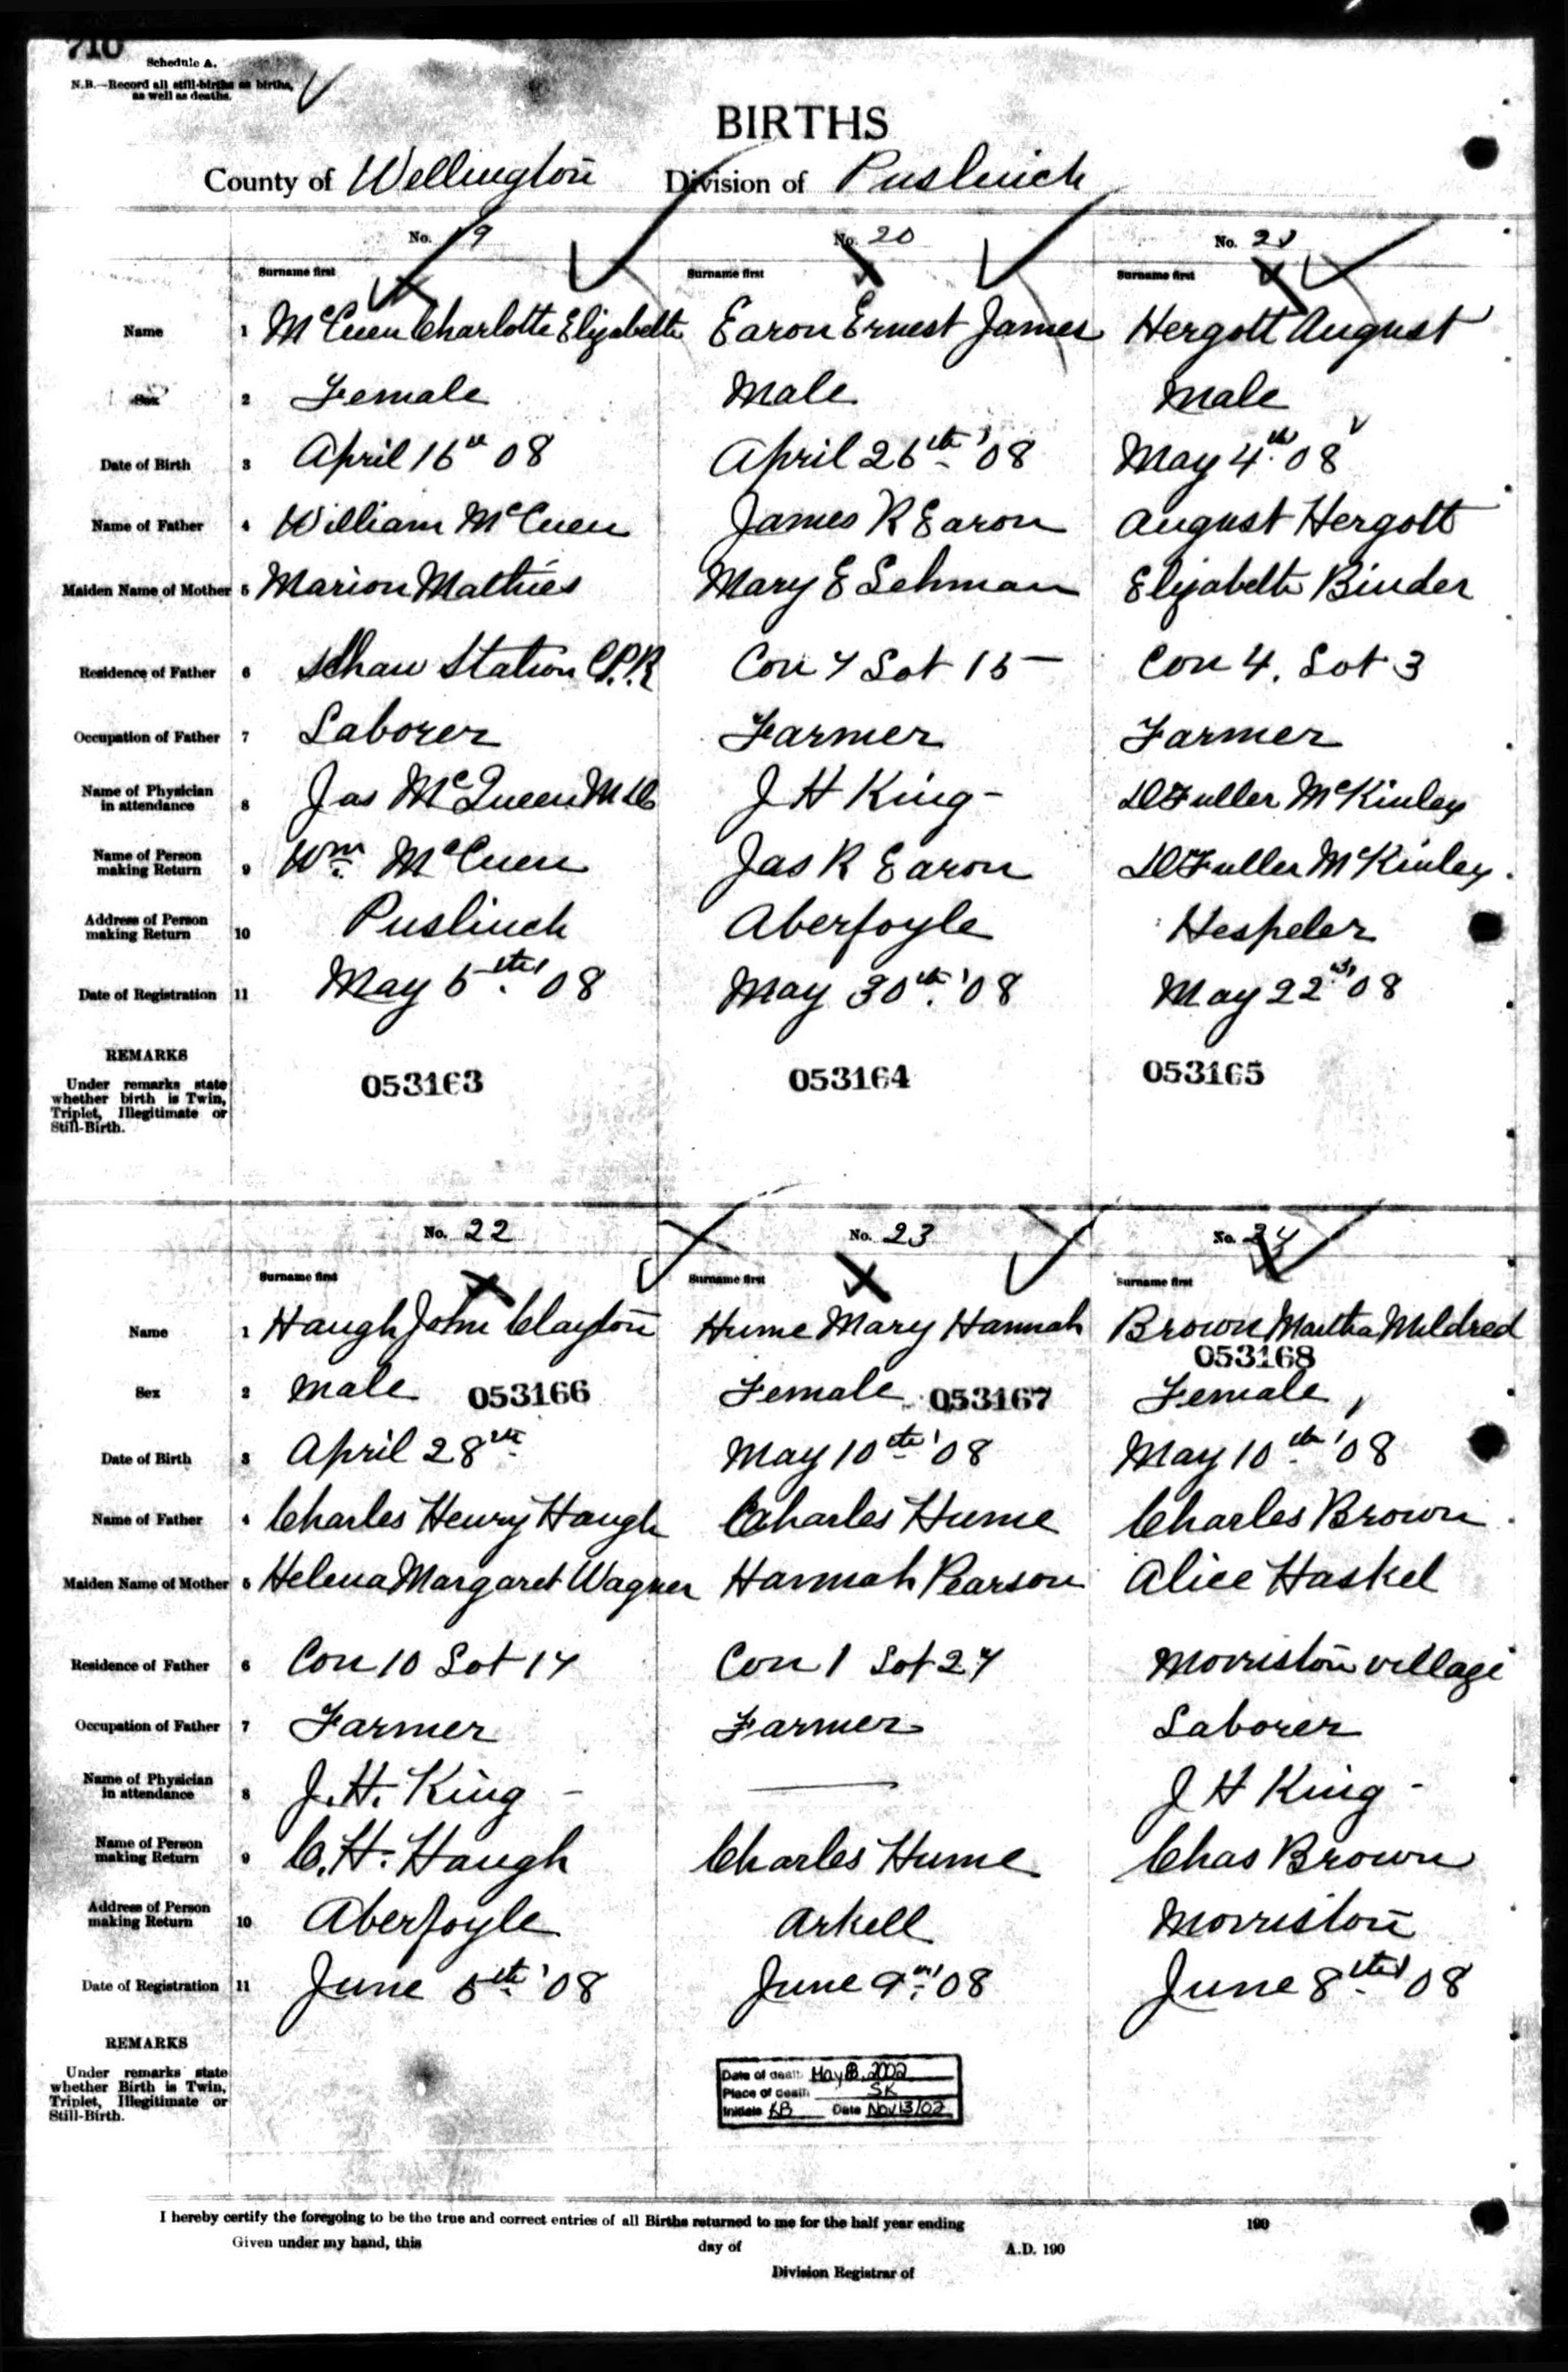 710
Schedule A.
N.B.—Record all still-births as births,
as well as deaths.
BIRTHS
County of Wellington Division of Puslinch
No. 19 No. 20 No. 21
Surname first Surname first Surname first
Name 1 McCuen Charlotte Elizabeth Earon Ernest James Hergott August
Sex 2 Female Male Male
Date of Birth 3 April 16th 08 April 26th '08 May 4th 08
Name of Father 4 William McCuen James R Earon August Hergott
Maiden Name of Mother 5 Marion Mathies Mary E Lehman Elizabeth Binder
Residence of Father 6 Schaw Station C.P.R Con 7 Lot 15 Con 4. Lot 3
Occupation of Father 7 Laborer Farmer Farmer
Name of Physician
in attendance 8 Jas McQueen MD J H King - D Fuller McKinley
Name of Person
making Return 9 Wm. McCuen Jas R Earon D Fuller McKinley.
Address of Person
making Return 10 Puslinch Aberfoyle Hespeler
Date of Registration 11 May 5th '08 May 30th '08 May 22nd 08
REMARKS
053163 053164 053165
Under remarks state
whether birth is Twin,
Triplet, Illegitimate or
Still-Birth.
No. 22 No. 23 No. 24
Surname first Surname first Surname first
Name 1 Haugh John Clayton Hume Mary Hannah Brown Martha Mildred
053168
Sex 2 Male 053166 Female 053167 Female
Date of Birth 3 April 28th May 10th '08 May 10th '08
Name of Father 4 Charles Henry Haugh Charles Hume Charles Brown.
Maiden Name of Mother 5 Helena Margaret Wagner Hannah Pearson Alice Haskel
Residence of Father 6 Con 10 Lot 14 Con 1 Lot 24 Morriston village
Occupation of Father 7 Farmer Farmer Laborer
Name of Physician
in attendance 8 J. H. King - — J H King -
Name of Person
making Return 9 C. H. Haugh Charles Hume Chas Brown
Address of Person
making Return 10 Aberfoyle Arkell Morriston
Date of Registration 11 June 5th '08 June 9th '08 June 8th '08
REMARKS
Under remarks state
whether Birth is Twin,
Triplet, Illegitimate or
Still-Birth.
Date of death May 8, 2002
Place of death SK
Initials KB Date Nov 13/02
I hereby certify the foregoing to be the true and correct entries of all Births returned to me for the half year ending 190
Given under my hand, this day of A.D. 190
Division Registrar of